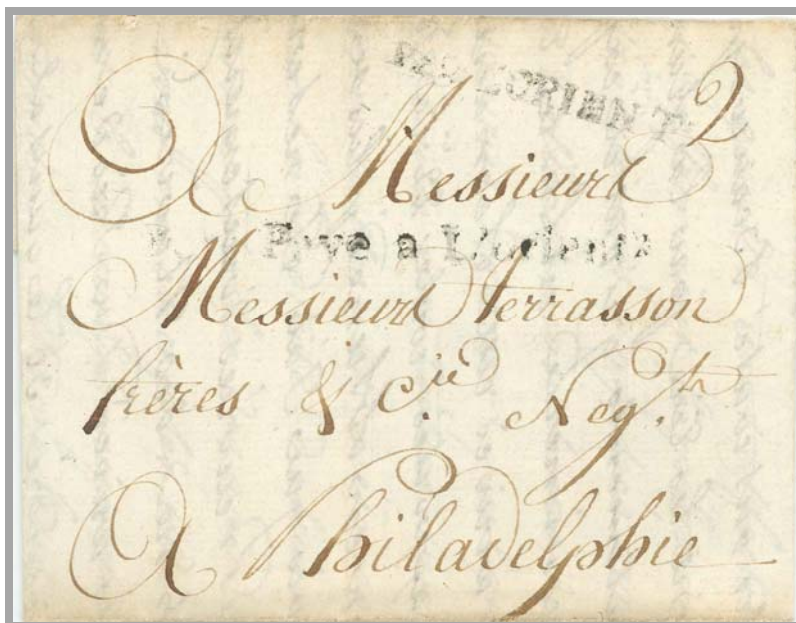 LORIENT
2
A Messieurs
Payé a L'orient
Messieurs terrasson
frères & Cie. Negts.
A Philadelphie